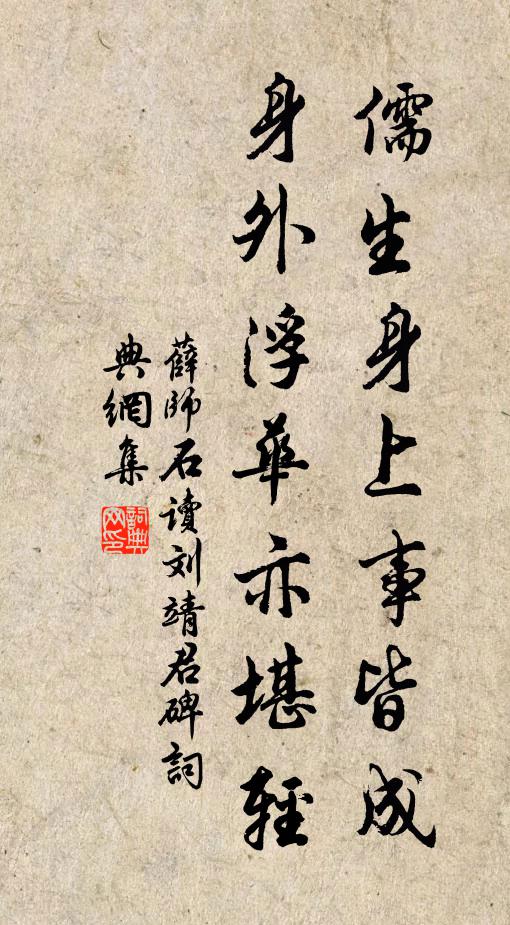 儒生身上事皆成
身外浮華亦堪輕
薛師石读刘靖君碑詞
典網集
詞典
网印